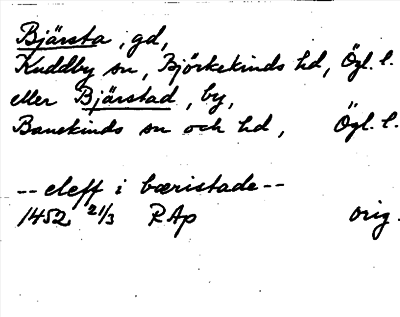 Bjärsta, gd,
Kuddby sn, Björkekinds hd, Ögl. l.
eller Bjärstad, by,
Banekinds sn och hd, Ögl. l.
-- eleff i bæristade --
1452 21/3 RAp orig.